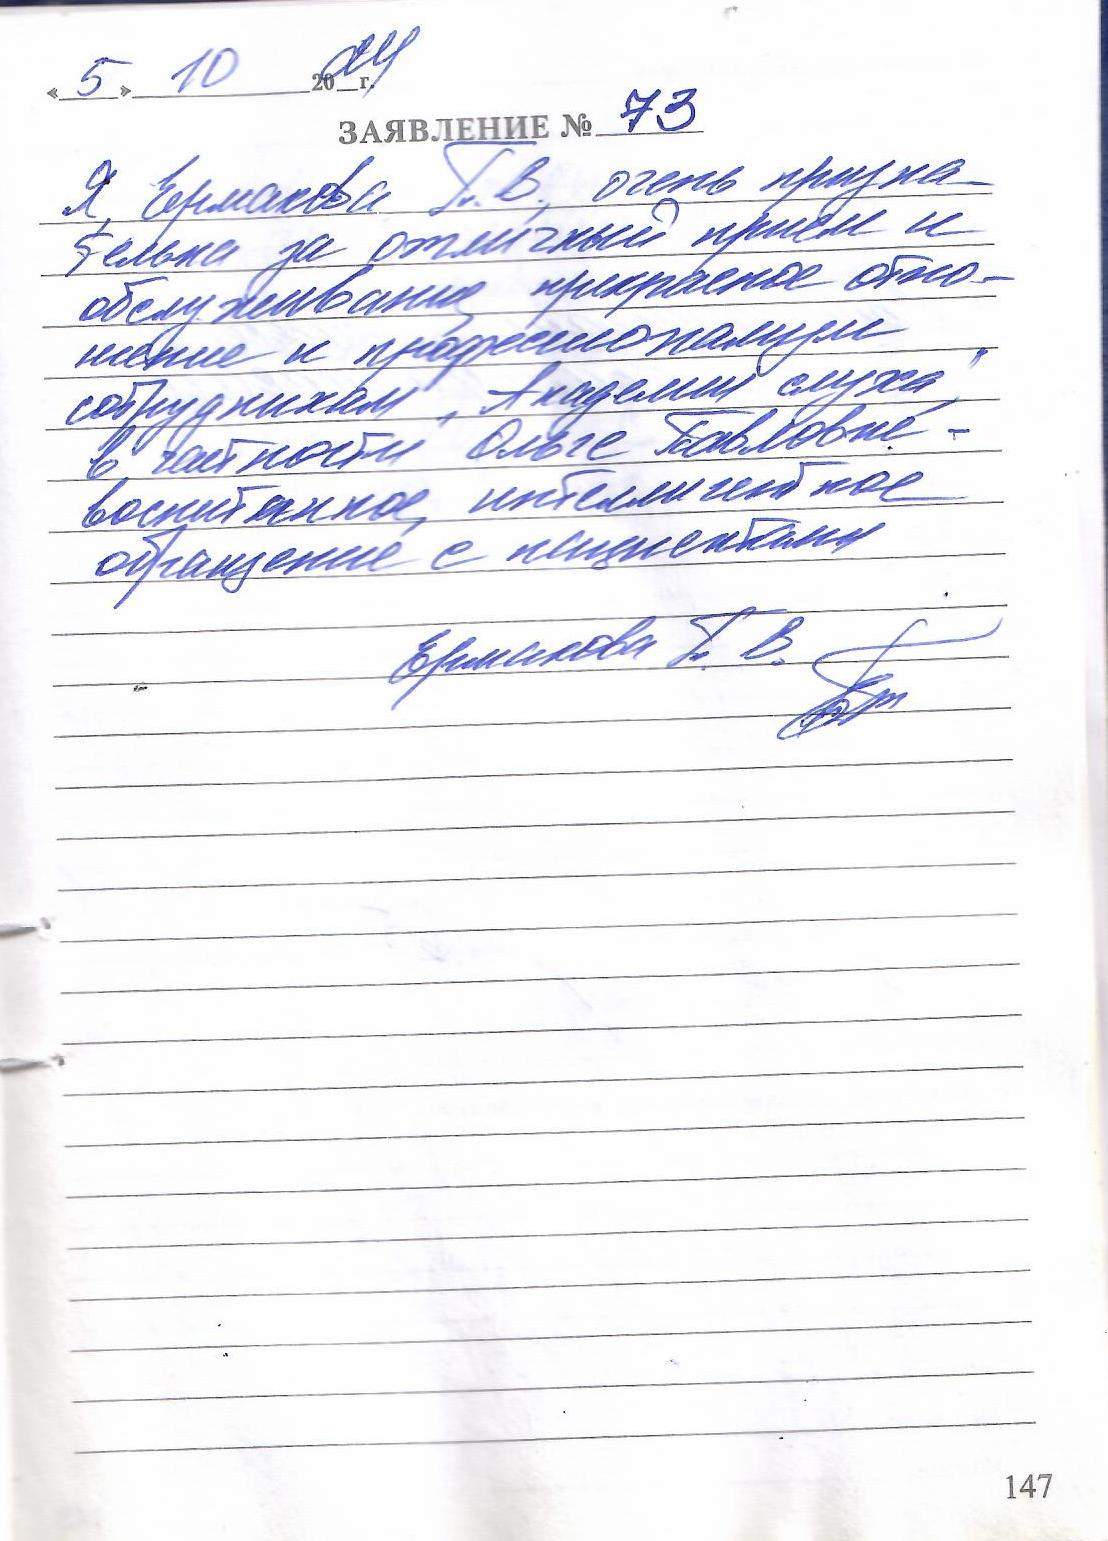 «5» 10 2024 г.
ЗАЯВЛЕНИЕ № 73
Я, Ермакова Г. В. очень призна-
тельна за отличный прием и
обслуживание, прекрасное отно-
шение и профессионализм
сотрудникам "Академии слуха",
в частности Ольге Павловне -
воспитанное, интеллигентное
обращение с пациентами
Ермакова Г. В.
147